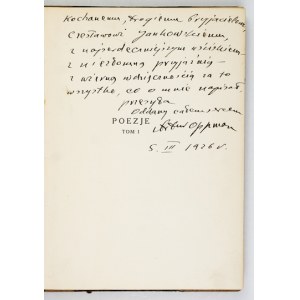 Kochanemu, drogiemu Przyjacielowi,
Czesławowi Jankowskiemu,
z najserdeczniejszym uściskiem,
z niezłomną przyjaźnią —
z wierną wdzięcznością za to
wszystko, co o mnie napisał,
oddany całem sercem
POEZJE
Artur Oppman
TOM I
5. III 1926 r.